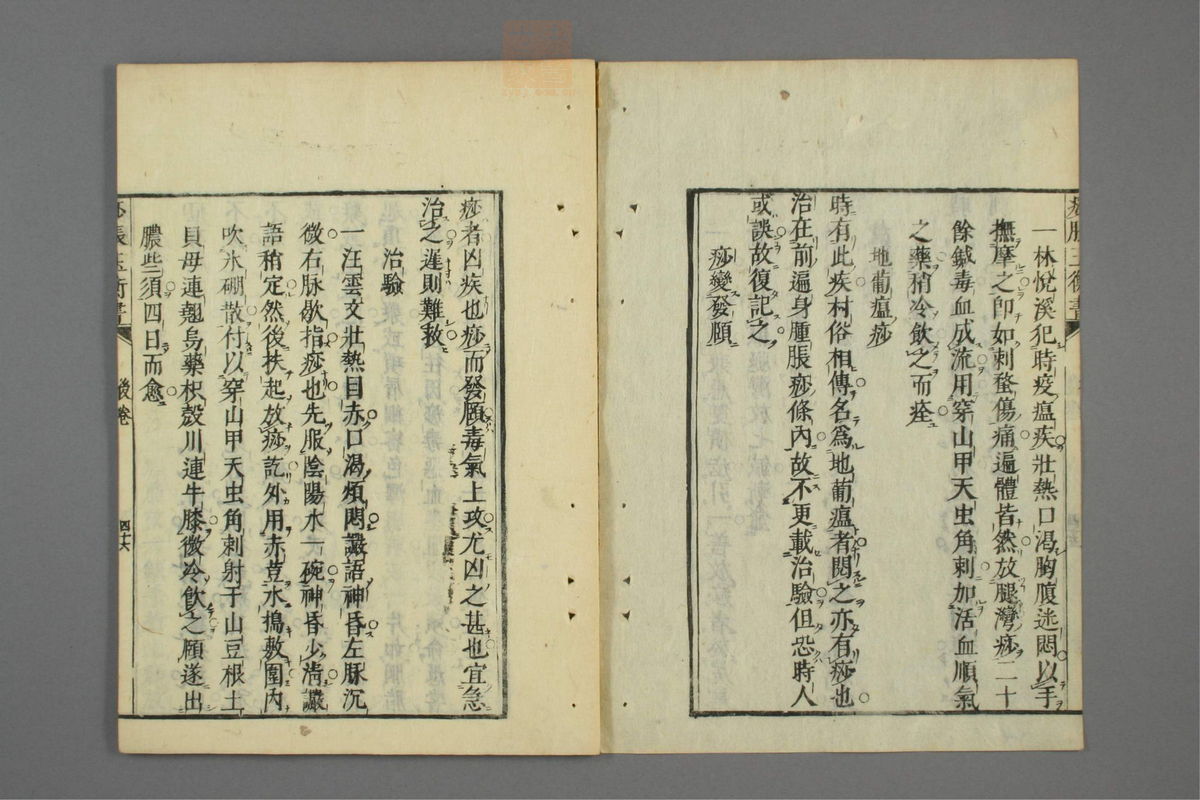 一林悅溪犯時疫瘟疾壯熱口渴胸腹迷悶以手
撫摩之即如刺螫傷痛遍體皆然放腿灣痧二十
餘鍼毒血成流用穿山甲天虫角刺加活血順氣
之藥稍冷飲之而痊
地葡瘟痧
時有此疾村俗相傳名爲地葡瘟者閱之亦有痧也
治在前遍身腫脹痧條內故不更載治驗但恐時人
或誤故復記之
痧變發頤
痧者凶疾也痧而發頤毒氣上攻尤凶之甚也宜急
治之遲則難救
治驗
一汪雲文壯熱目赤口渴煩悶讝語神昏左脉沉
微右脉歇指痧也先服陰陽水一碗神昏少清讝
語稍定然後扶起放痧訖外用赤荳水搗敷圍內
吹氷硼散付以穿山甲天虫角刺射干山豆根土
貝母連翹烏藥枳殼川連牛膝微冷飲之頤遂出
膿些須四日而愈
後卷
四十六